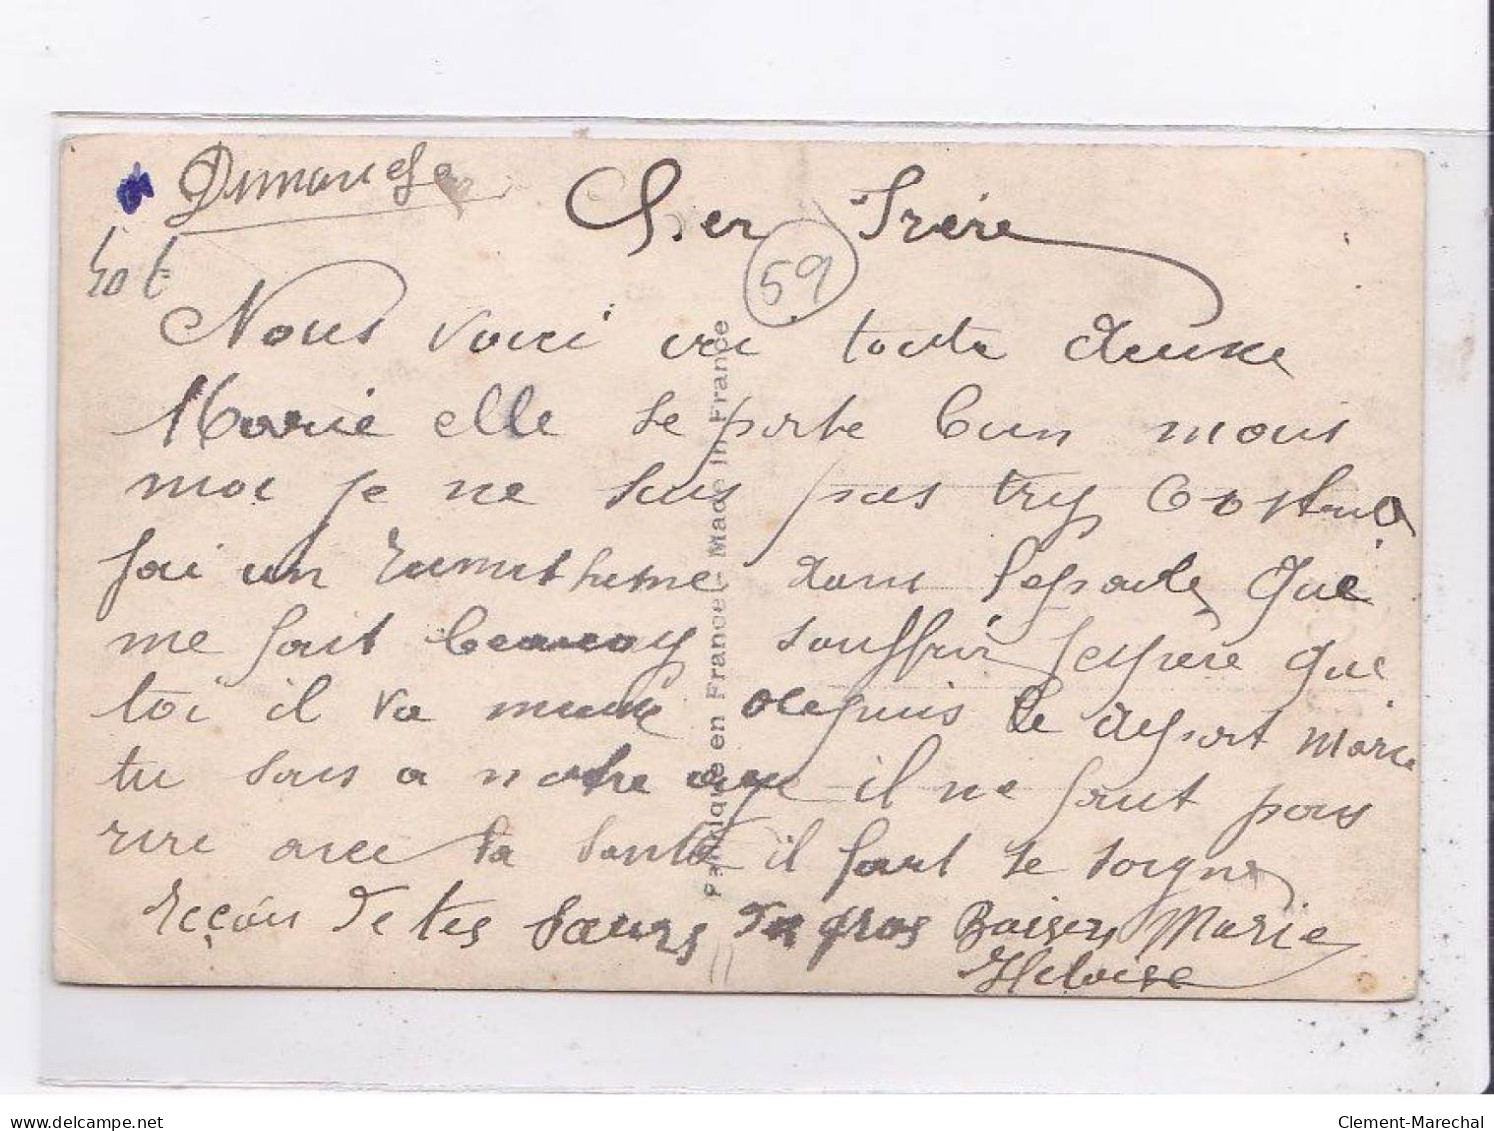 Dimanche
Cher Frère
59
Nous voici toute deuxe
Marie elle se porte bien mais
moi je ne suis pas try
jai un dans lepaule que
me fait beaucoup souffrir jespère que
toi il va mieux depuis le depart Marie
tu sais a notre age il ne faut pas
rire avec la santé il faut se soigne
Reçois de tes sœurs de gros Baisers Marie
Heloise
Fabriqué en France - Made in France
delcampe.net
Clement-Marechal